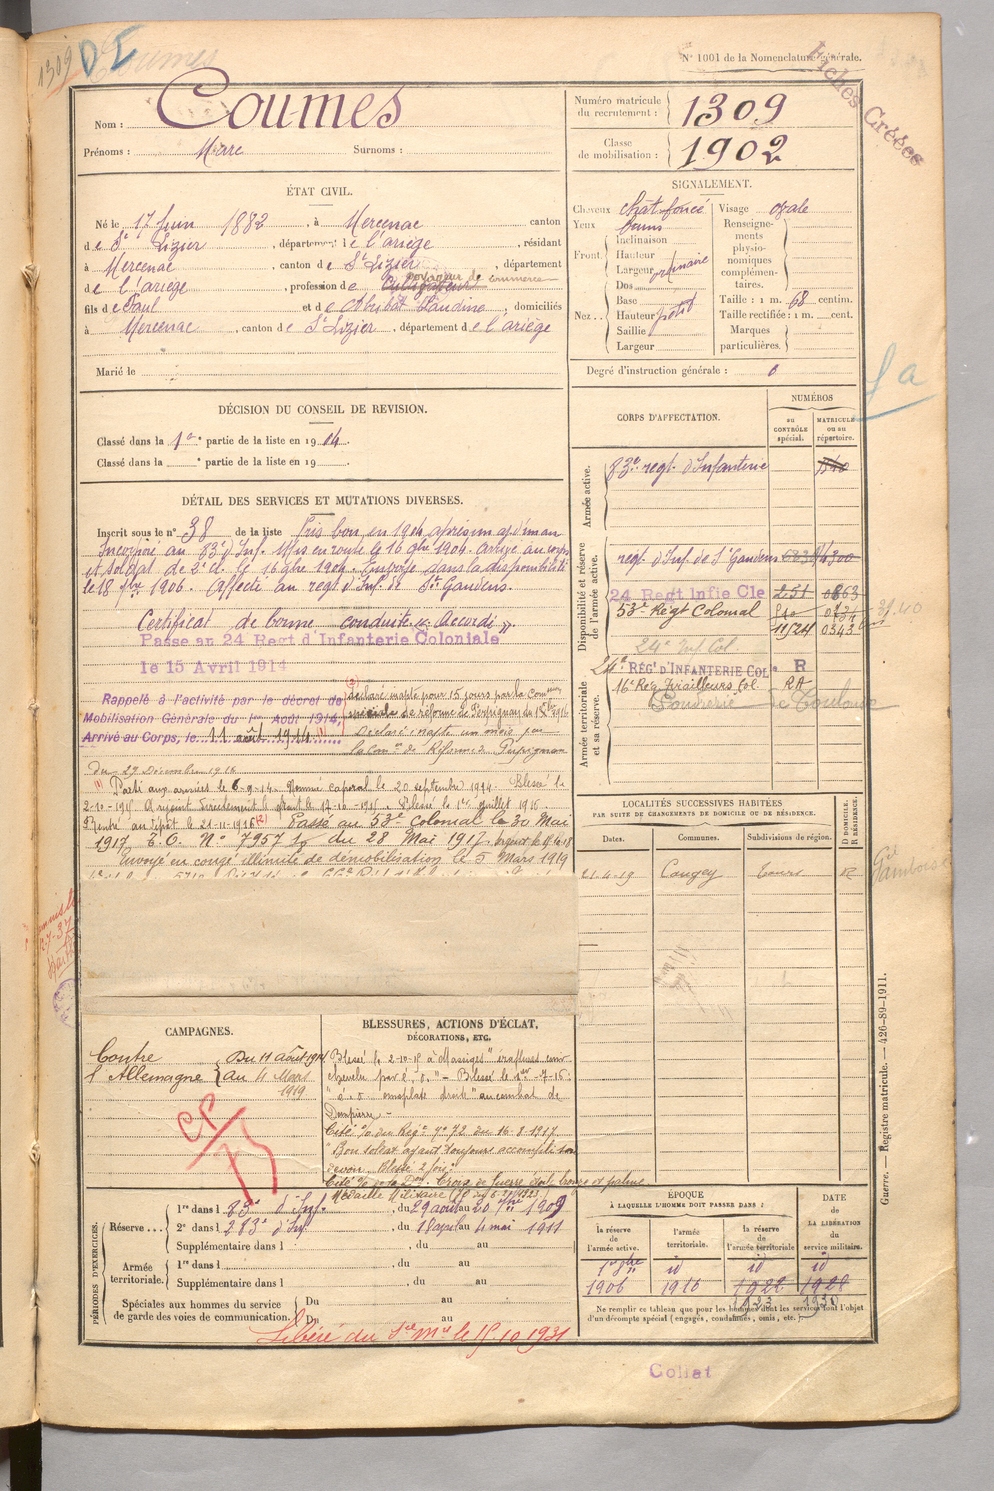 1309
DE
Coumes
N° 1001 de la Nomenclature générale.
Fiches Créées
Nom : Coumes
Prénoms : Marc Surnoms :
Numéro matricule du recrutement : 1309
Classe de mobilisation : 1902
ÉTAT CIVIL.
Né le 17 Juin 1882, à Mercenac canton
de St Lizier, département de l'ariège, résidant
à Mercenac, canton de St Lizier, département
de l'ariège, profession de voyageur de commerce
fils de Paul et de Abribat Claudine, domiciliés
à Mercenac, canton de St Lizier, département de l'ariège
Marié le
SIGNALEMENT.
Cheveux chât-foncé
Yeux bruns
Front. Inclinaison
Hauteur
Largeur ordinaire
Nez... Dos
Base
Hauteur petit
Saillie
Largeur
Visage ovale
Renseignements physionomiques complémentaires.
Taille : 1 m. 68 centim.
Taille rectifiée : 1 m. cent.
Marques particulières.
Degré d'instruction générale : 0
fa
DÉCISION DU CONSEIL DE REVISION.
Classé dans la 1re partie de la liste en 1904.
Classé dans la e partie de la liste en 19 .
CORPS D'AFFECTATION.
NUMÉROS
au CONTRÔLE spécial.
MATRICULE ou au répertoire.
Armée active.
83e regt d'Infanterie
Disponibilité et réserve de l'armée active.
regt d'Inf de St Gaudens
24 Regt Infie Cle 251 0863
53e Régt Colonial
11/24 0343
24e Inf. Col.
Armée territoriale et sa réserve.
24e RÉGt D'INFANTERIE COLe R
16e Rég Tirailleurs Col. RA
Poudrerie de Toulouse
DÉTAIL DES SERVICES ET MUTATIONS DIVERSES.
Inscrit sous le n° 38 de la liste Pris bon en 1904 après un aj. d'un an
Incorporé au 83e d'Inf. Mis en route le 16 9bre 1904. arrivé au corps
et soldat de 2e cl. le 16 9bre 1904. Envoyé dans la disponibilité
le 18 9bre 1906. Affecté au regt d'Inf. de St Gaudens.
Certificat de bonne conduite « Accordé »
Passé au 24 Regt d'Infanterie Coloniale
le 15 Avril 1914
Rappelé à l'activité par le décret de
Mobilisation Générale du 1er Août 1914,
Arrivé au Corps, le 11 août 1914 (1)
(2) déclaré inapte pour 15 jours par la Comon
spéciale de réforme de Perpignan
Déclaré inapte un mois par
la Comon de Réforme de Perpignan
du 29 Décembre 1916
(1) Parti aux armées le 6-9-14. Nommé caporal le 20 septembre 1914. Blessé le
2-10-1915. Blessé le 1er juillet 1916.
Rentré au dépôt le 21-11-1916 (2) Passé au 53e Colonial le 30 Mai
1917 E. O. N° 7957 1/9 du 28 Mai 1917.
Envoyé en congé illimité de démobilisation le 5 Mars 1919
LOCALITÉS SUCCESSIVES HABITÉES
PAR SUITE DE CHANGEMENTS DE DOMICILE OU DE RÉSIDENCE.
Dates.
Communes.
Subdivisions de région.
D DOMICILE. R RÉSIDENCE.
21-4-19 Cangey Tours R
CAMPAGNES.
Contre l'Allemagne
Du 11 août 1914
au 4 Mars 1919
BLESSURES, ACTIONS D'ÉCLAT, DÉCORATIONS, ETC.
Blessé le 2-10-15 à "Massiges" éraflures cuir
chevelu par é. o." - Blessé le 1er-7-16:
"é. o omoplate droite" au combat de
Dompierre -
Cité %du Régt N° 72 du 16-8-1917.
"Bon soldat ayant toujours accompli son
devoir. Blessé 2 fois".
Croix de Guerre, étoile bronze et palme.
Médaille Militaire
PÉRIODES D'EXERCICES.
Réserve...
1re dans l 83e d'Inf., du 29 août au 20 7bre 1909
2e dans l 283e d'Inf., du 18 avril au 4 mai 1911
Supplémentaire dans l , du au
Armée territoriale.
1re dans l , du au
Supplémentaire dans l , du au
Spéciales aux hommes du service de garde des voies de communication.
Du au
Du au
Libéré du Sce Mre le 15.10.1931
ÉPOQUE
À LAQUELLE L'HOMME DOIT PASSER DANS :
la réserve de l'armée active.
l'armée territoriale.
la réserve de l'armée territoriale
DATE DE LA LIBÉRATION du service militaire.
1er 8bre id id id
1906 1916 1922 1928
Ne remplir ce tableau que pour les hommes dont les services font l'objet
d'un décompte spécial (engagés, condamnés, omis, etc.)
Guerre. — Registre matricule. — 426-89-1911.
Collat